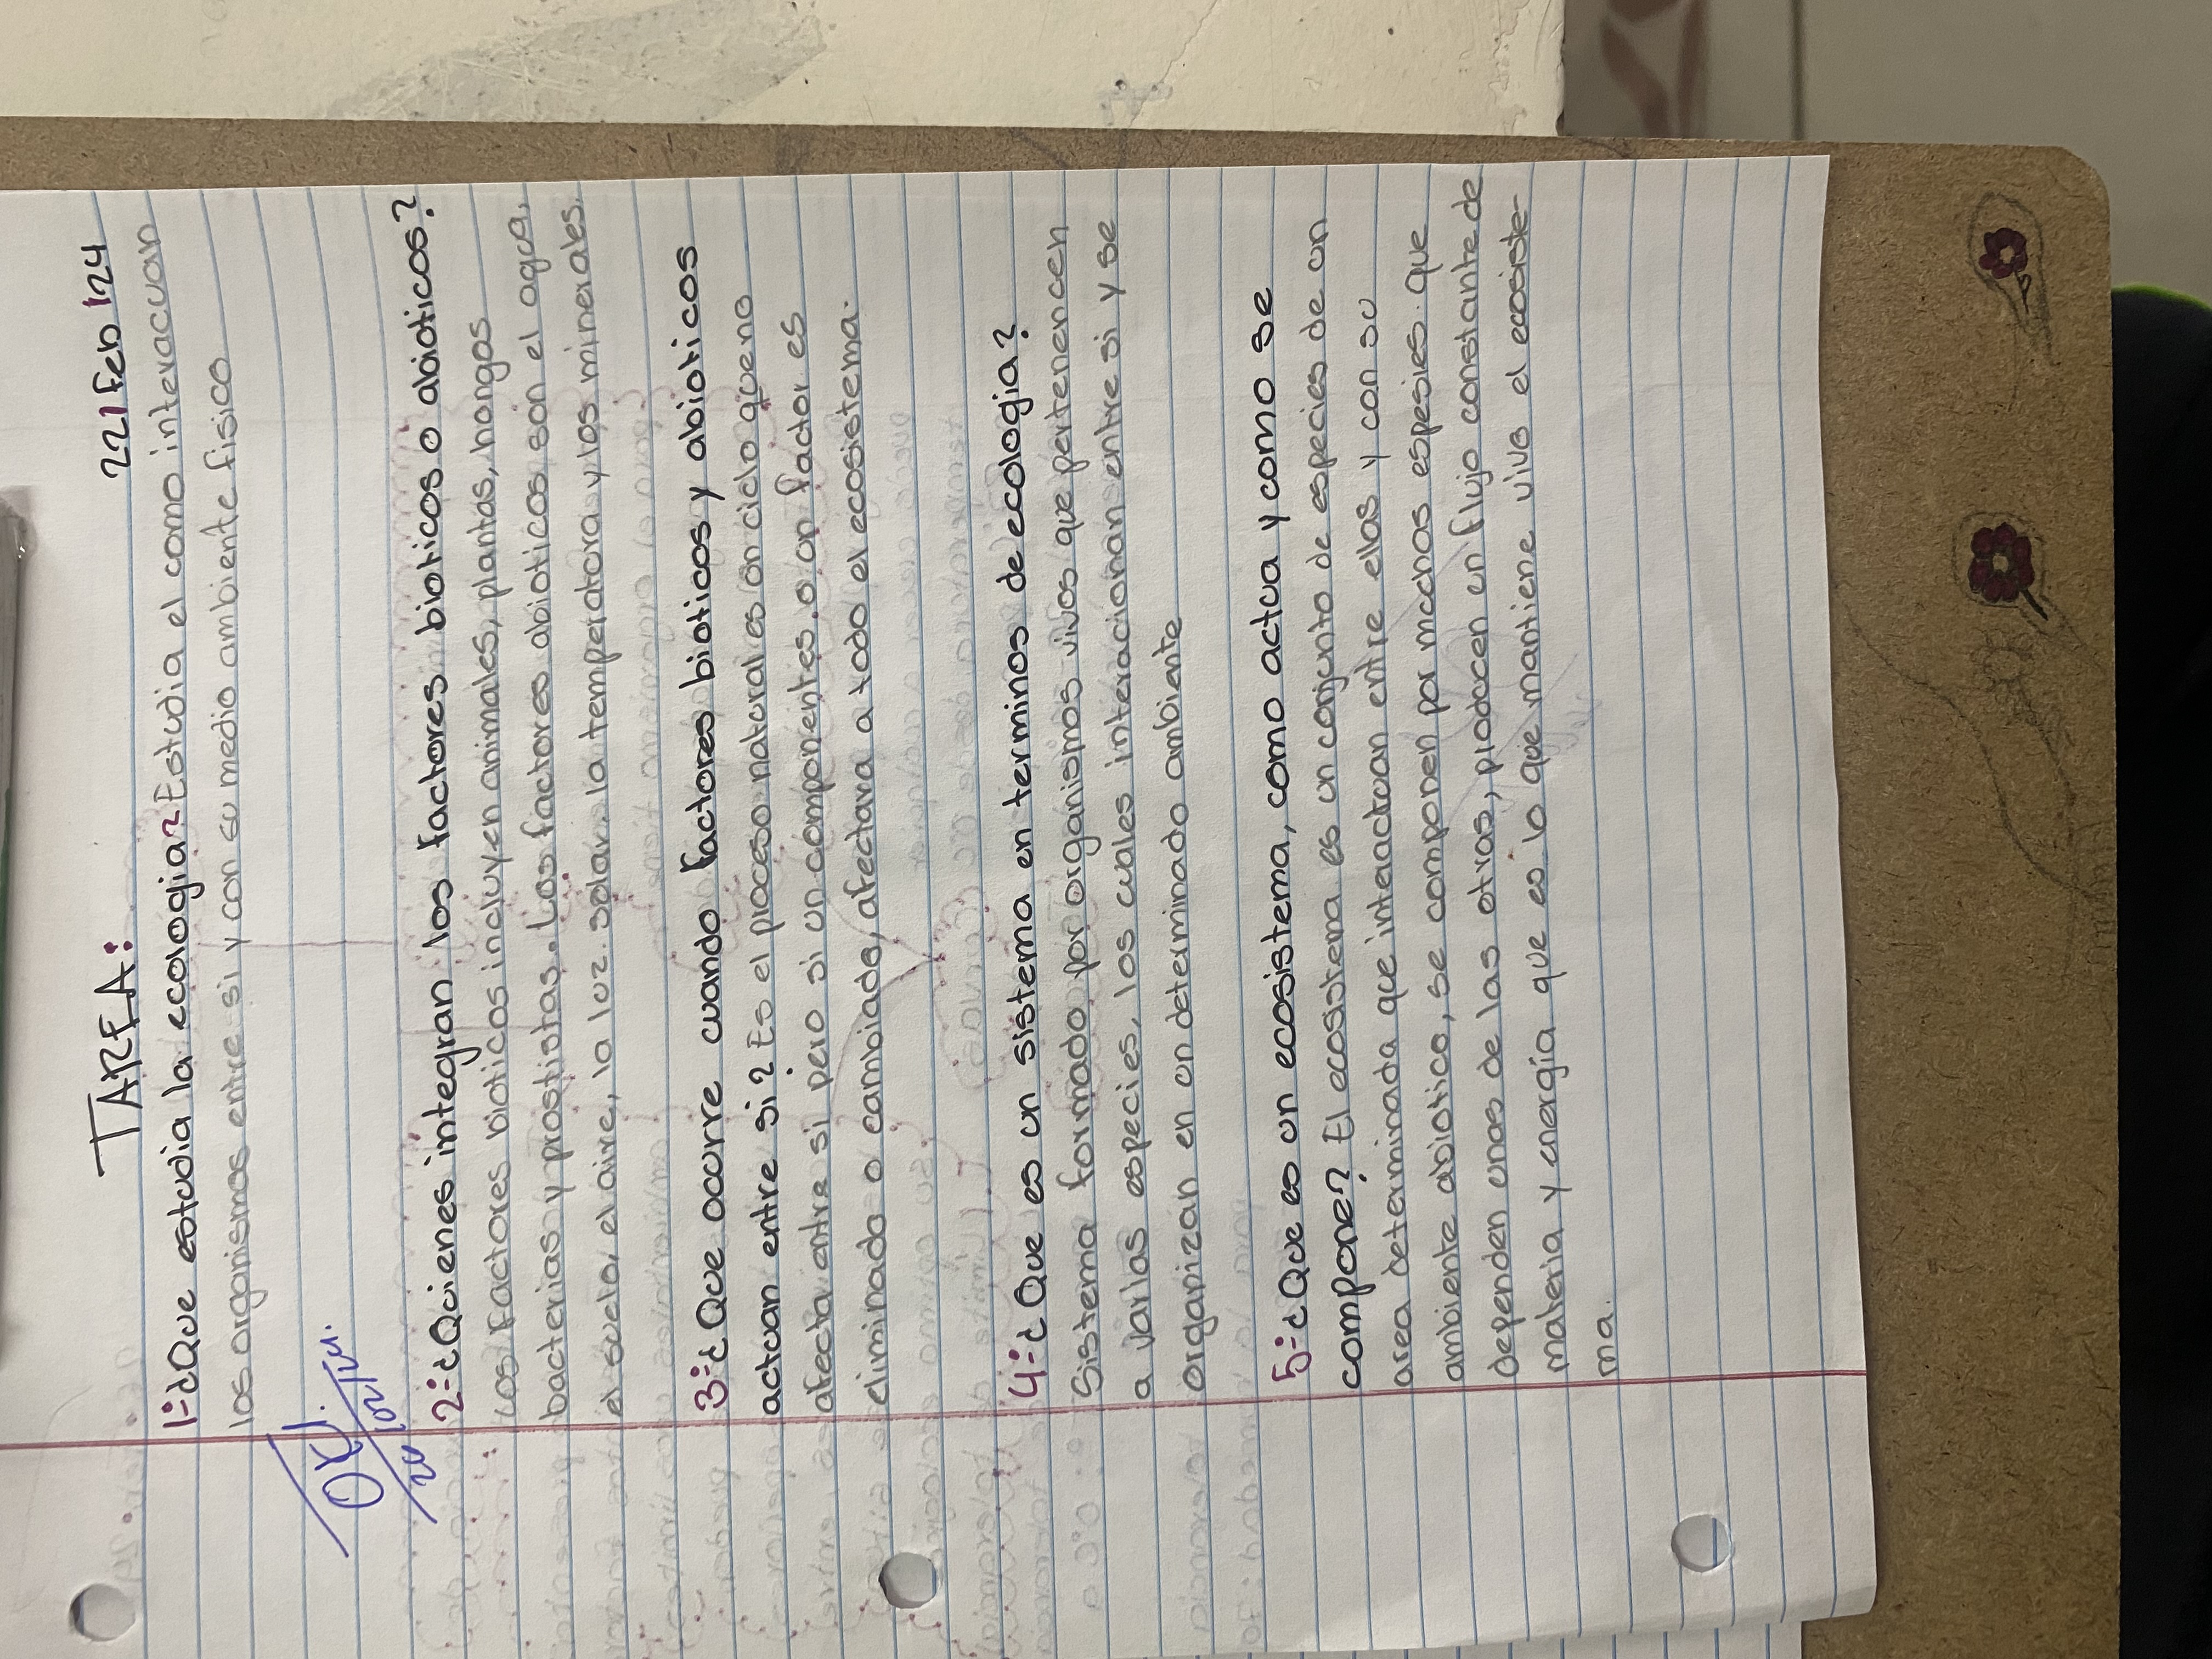 TAREA:
22/Feb/24
1-¿Que estudia la ecologia? Estudia el como interacuan
los organismos entre si y con su medio ambiente fisico
OK!.
2-¿Quienes integran los factores bioticos o abioticos?
Los factores bioticos incluyen animales, plantas, hongos
bacterias y prostistas. Los factores abioticos son el agua,
el suelo, el aire, la luz solar. la temperatura y los minerales.
3-¿Que ocurre cuando factores bioticos y abioticos
actuan entre si? Es el proceso natural es un ciclo que no
afecta entre si pero si un componentes o un factor es
eliminado o cambiado, afectara a todo el ecosistema.
4-¿Que es un sistema en terminos de ecologia?
Sistema formado por organismos vivos que pertenencen
a varias especies, los cuales interaccionan entre si y se
organizan en un determinado ambiente
5-¿Que es un ecosistema, como actua y como se
compone? El ecosistema es un conjunto de especies de un
area determinada que interactuan entre ellas y con su
ambiente abiotico, se componen por muchos espesies que
dependen unas de las otras, producen un flujo constante de
materia y energia que es lo que mantiene vivo el ecosiste-
ma.